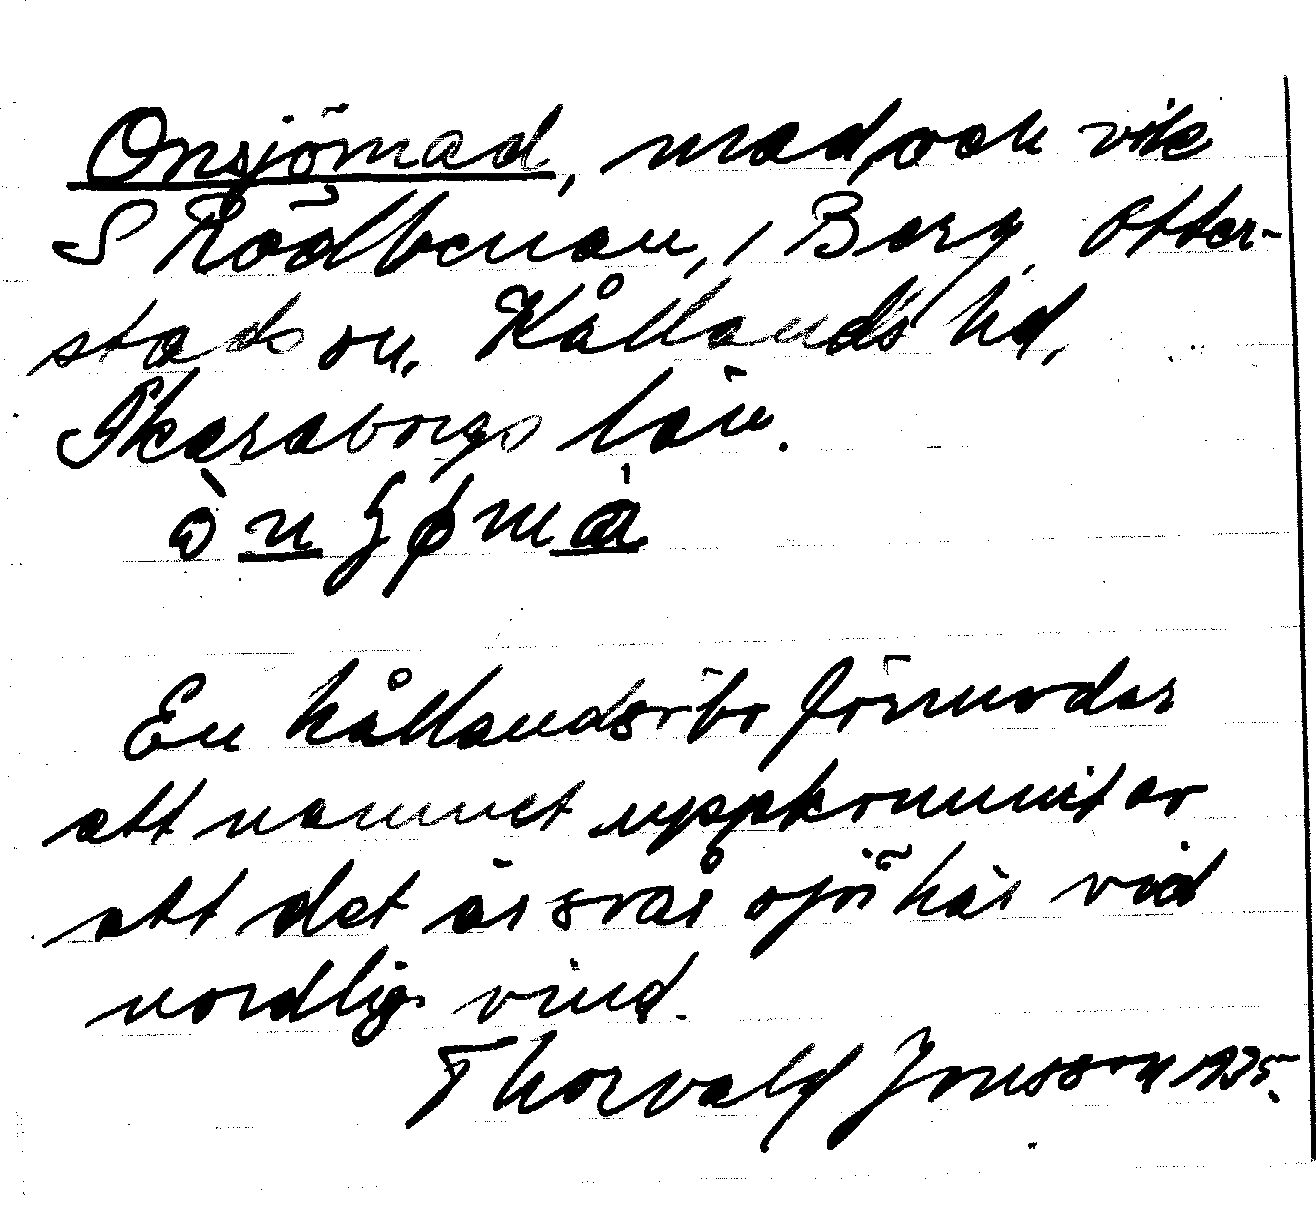 Onsjömad, mad och vik
S Rödbenan, i Berg, Otter-
stads sn, Kållands hd,
Skaraborgs län.
En kållandsöbo förmodar
att namnet uppkommit av
att det är svår sjö här vid
nordlig vind.
Thorvald Jonsson 1935.